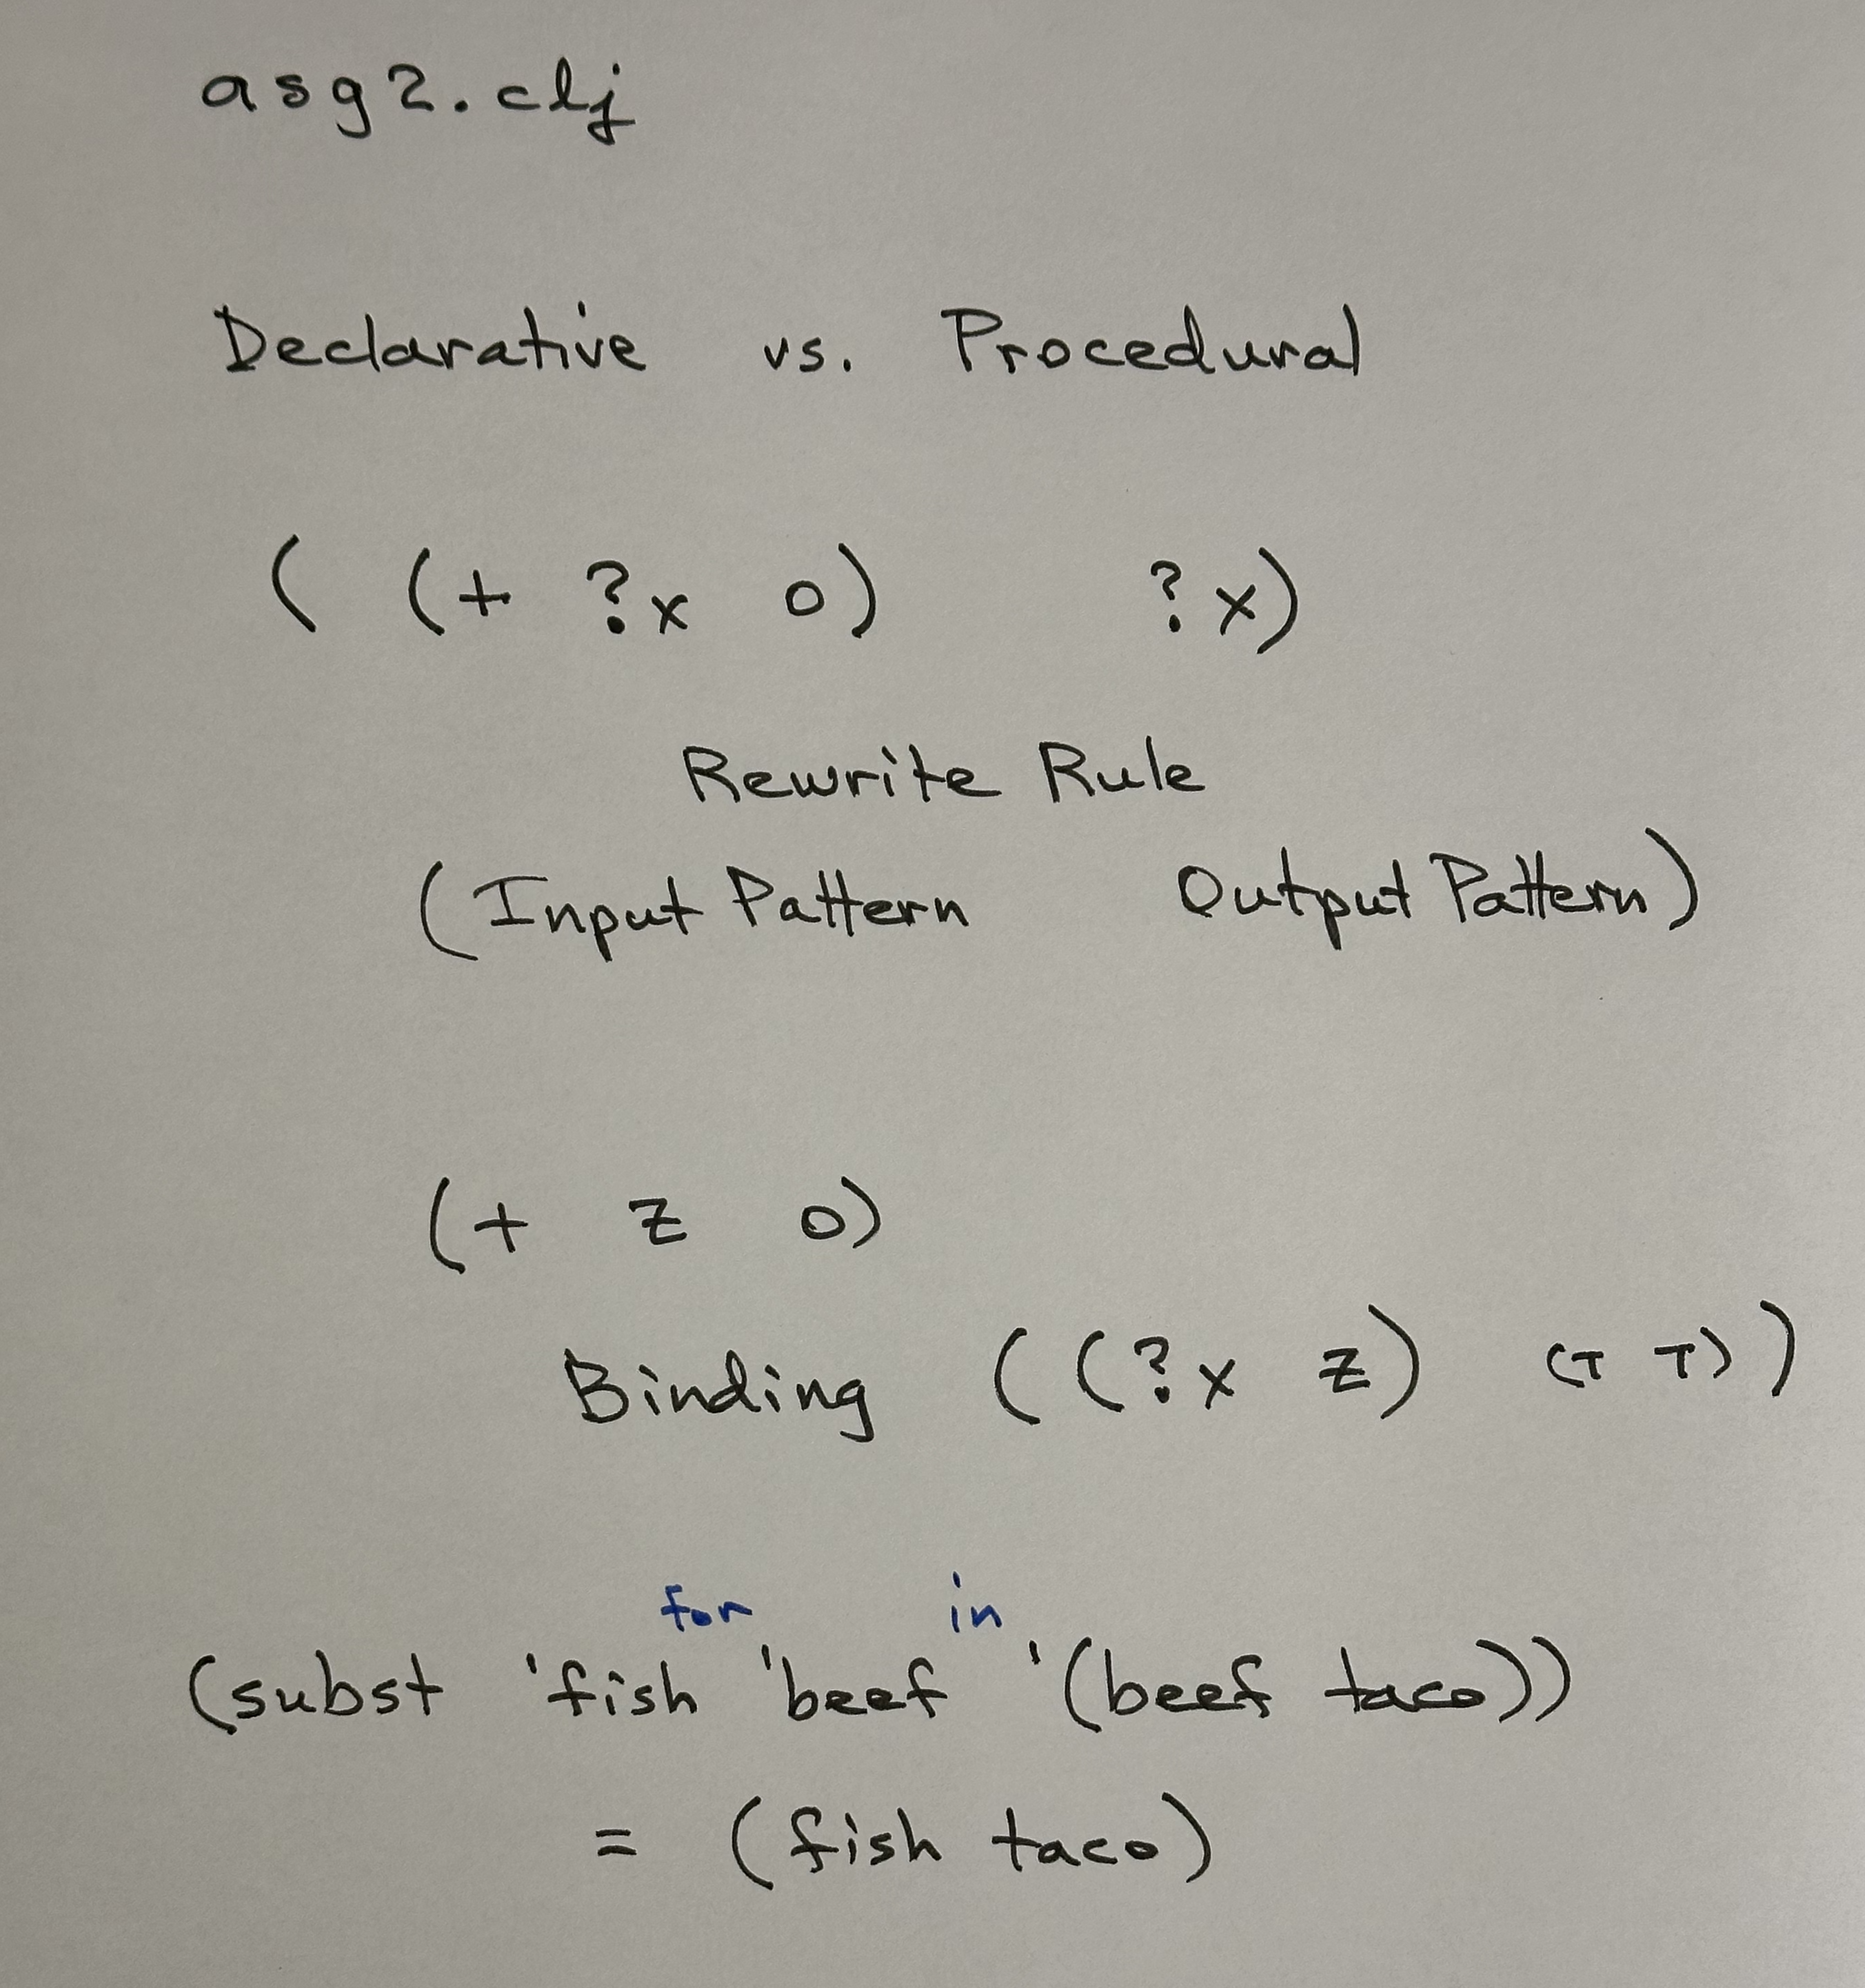 asg2.clj
Declarative vs. Procedural
( (+ ?x 0) ?x)
Rewrite Rule
(Input Pattern Output Pattern)
(+ z 0)
Binding ( (?x z) (T T) )
for in
(subst 'fish 'beef '(beef taco))
= (fish taco)